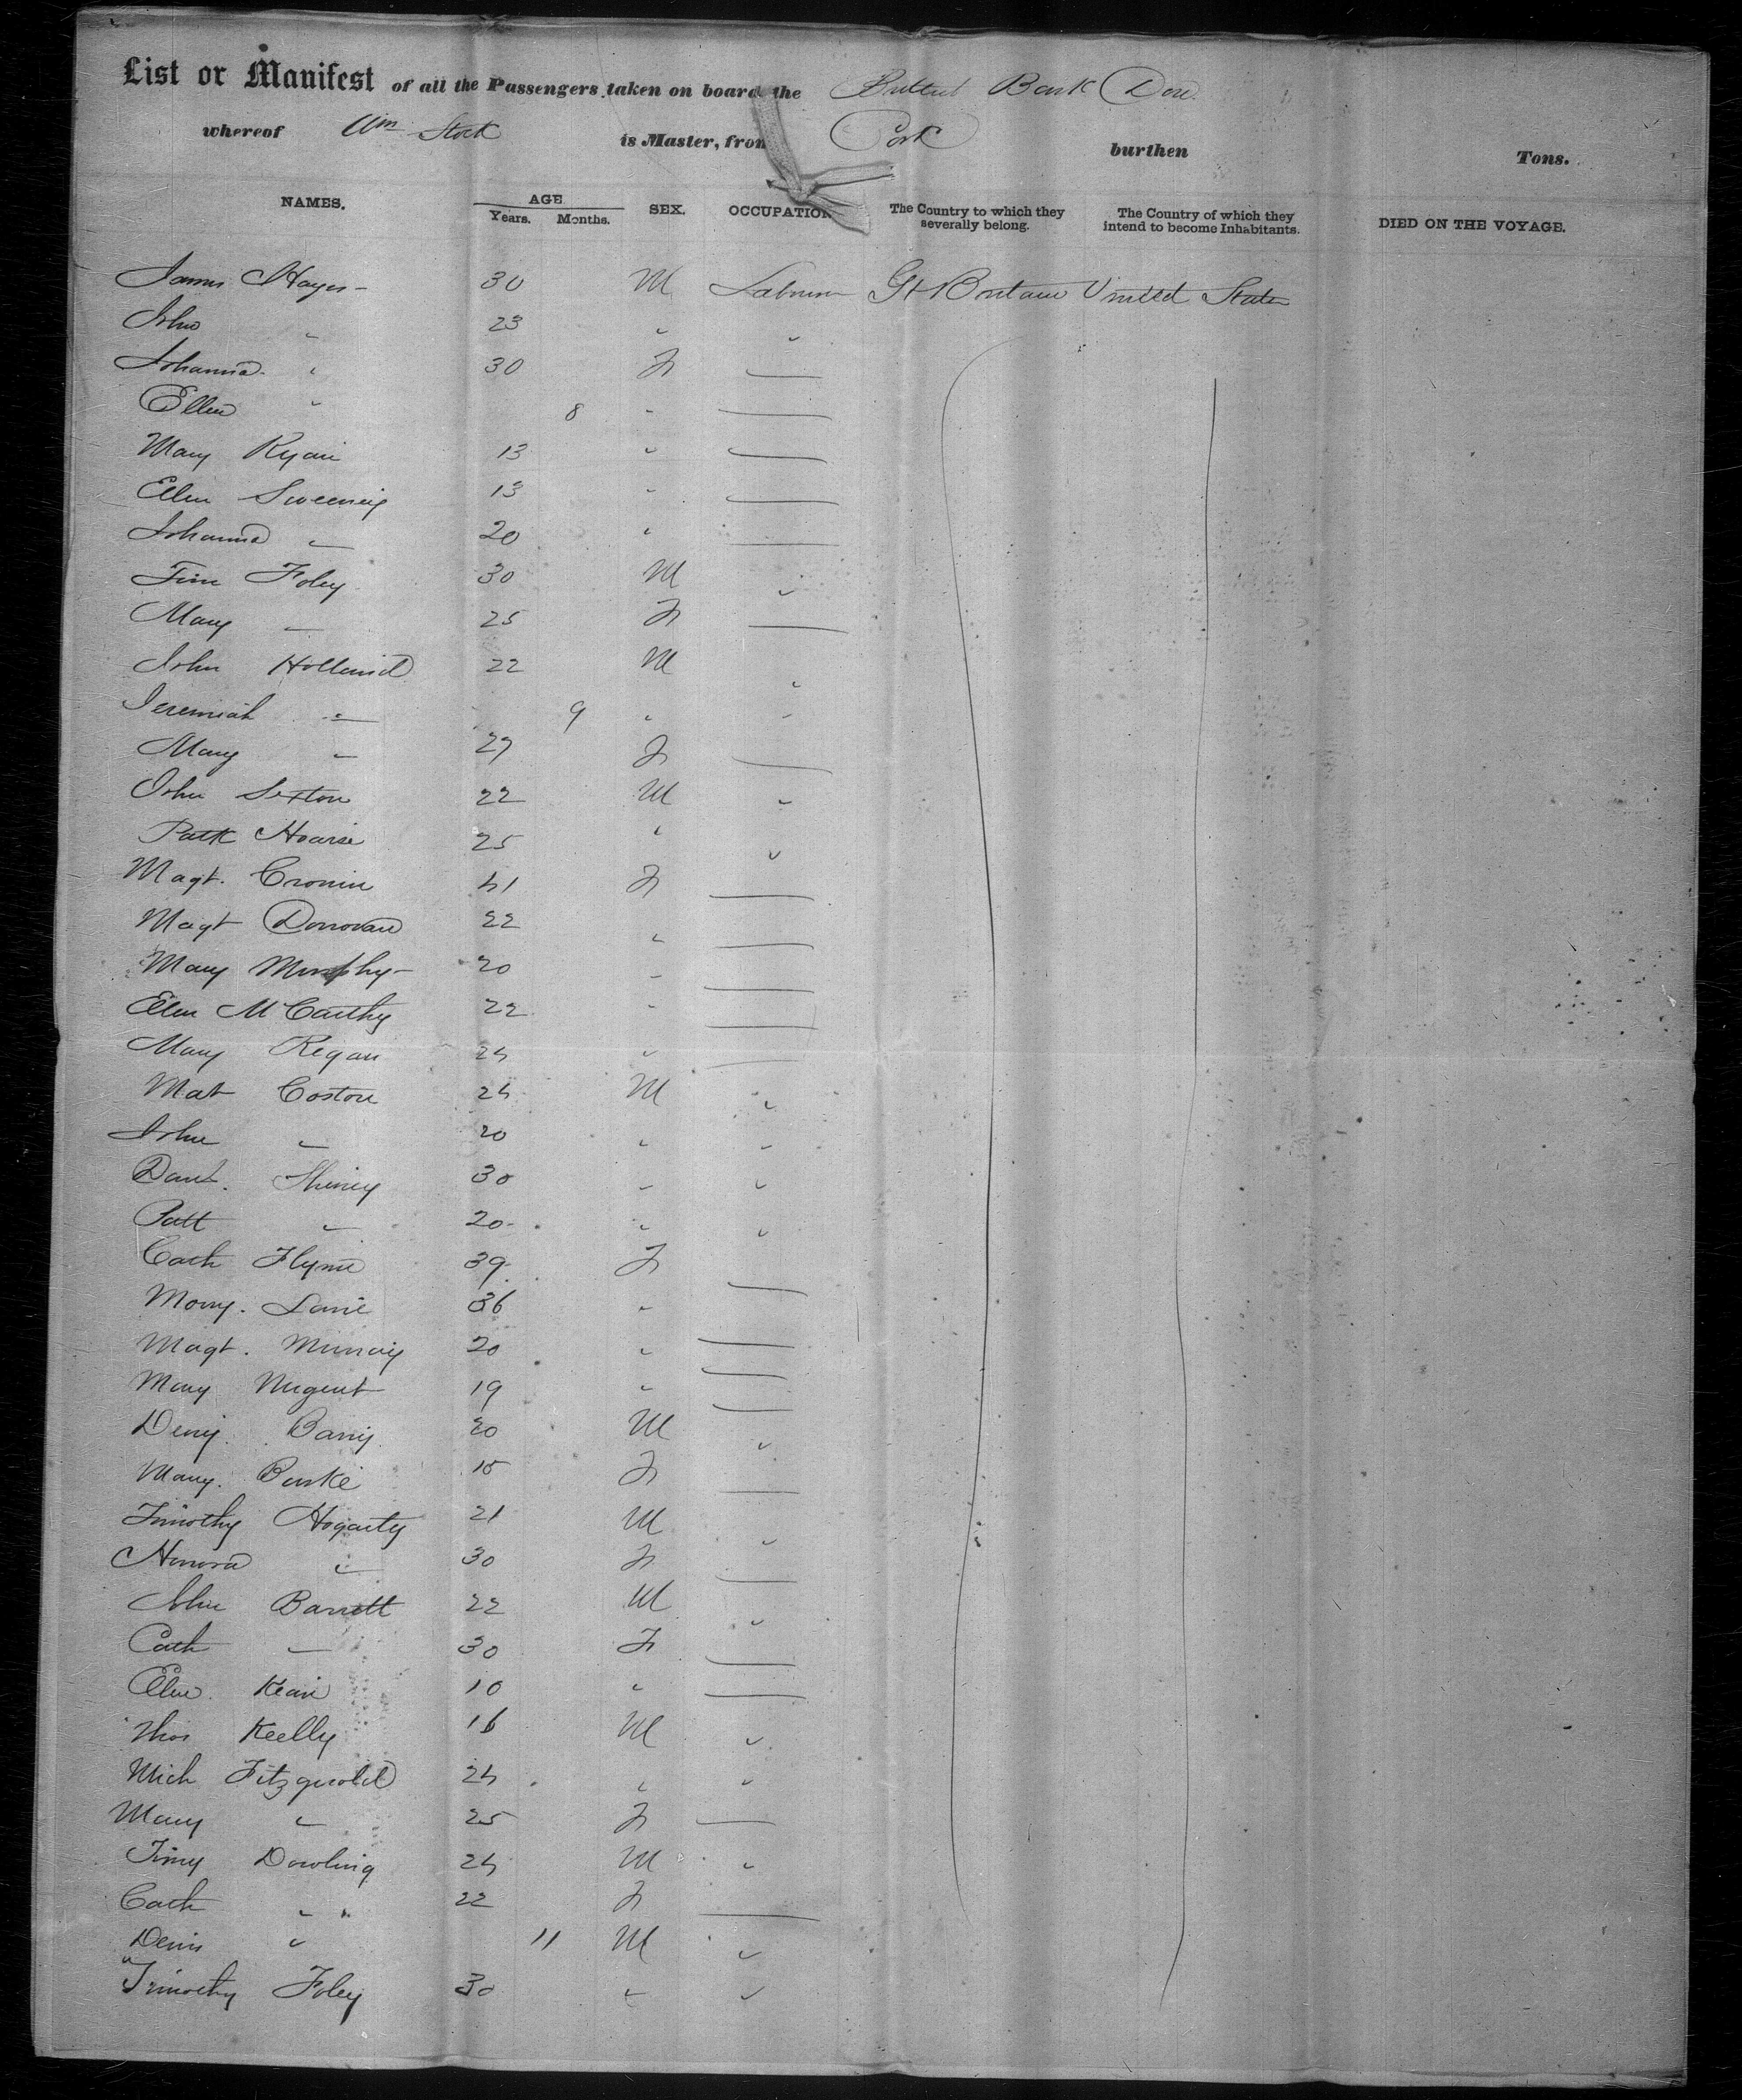 List or Manifest of all the Passengers taken on board the British Bark Dove
whereof Wm Stock is Master, from Cork burthen Tons.
NAMES. AGE Years. Months. SEX. OCCUPATION The Country to which they severally belong. The Country of which they intend to become Inhabitants. DIED ON THE VOYAGE.
James Hayes - 30 M Labourer Gt Britain United States
John " 23 " "
Johanna " 30 F —
Ellen " 8 " —
Mary Ryan 13 " —
Ellen Sweeney 13 " —
Johanna " 20 " —
Tim Foley 30 M "
Mary " 25 F —
John Holland 22 M "
Jeremiah " 9 " "
Mary " 27 F —
John Sexton 22 M "
Patk 25 " "
Magt. Cronin 41 F —
Magt Donovan 22 " —
Mary Murphy - 20 " —
Ellen McCarthy 22 " —
Mary Regan 24 " —
Mat Coston 24 M "
John " 20 " "
Danl. 30 " "
Patt " 20 " "
Cath Flynn 39 F —
Mary. Lane 36 " —
Magt. Murray 20 " —
Mary Nugent 19 " —
Deny. Barry 20 M "
Mary. Burke 15 F —
Timothy Hogarty 21 M "
Honora " 30 F —
John Barrett 22 M "
Cath " 30 F —
Ellen. Kean 10 " —
Thos Keelly 16 M "
Mich Fitzgerald 24 " "
Mary " 25 F —
Timy Dowling 24 M "
Cath " " 22 F —
Denis " 11 M "
Timothy Foley 30 " "